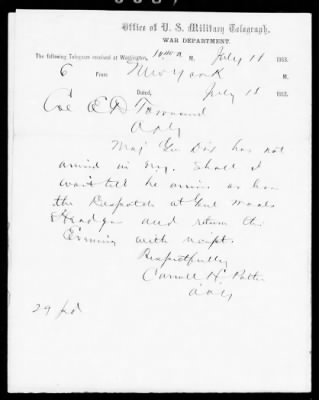 Office of U. S. Military Telegraph,
WAR DEPARTMENT.
The following Telegram received at Washington, M. July 18 1863.
6 From New York M.
Dated, July 18 1863.
Col E D Townsend
AAG
Maj Gen Dix has not
arrived in Shall I
wait till he arrives or
the Despatch at Genl
Headqrs and return this
Evening with receipt.
Respectfully
Carroll H. Potter
AAG
29 pd